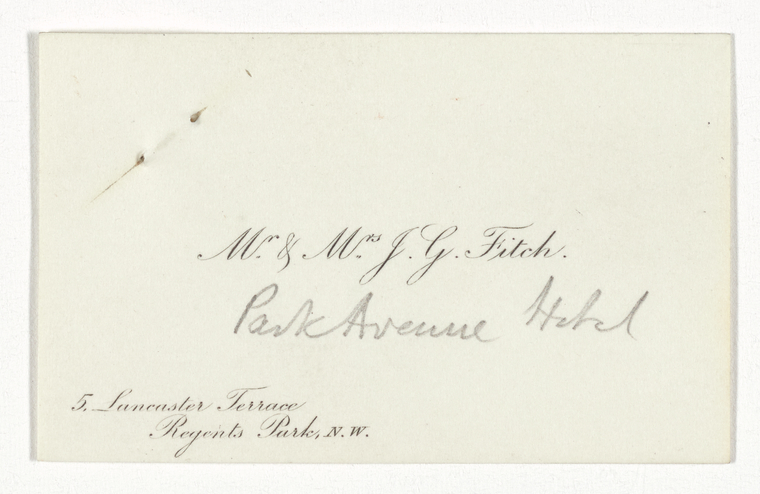 Mr. & Mrs J. G. Fitch.
Park Avenue Hotel
5. Lancaster Terrace
Regents Park, N.W.